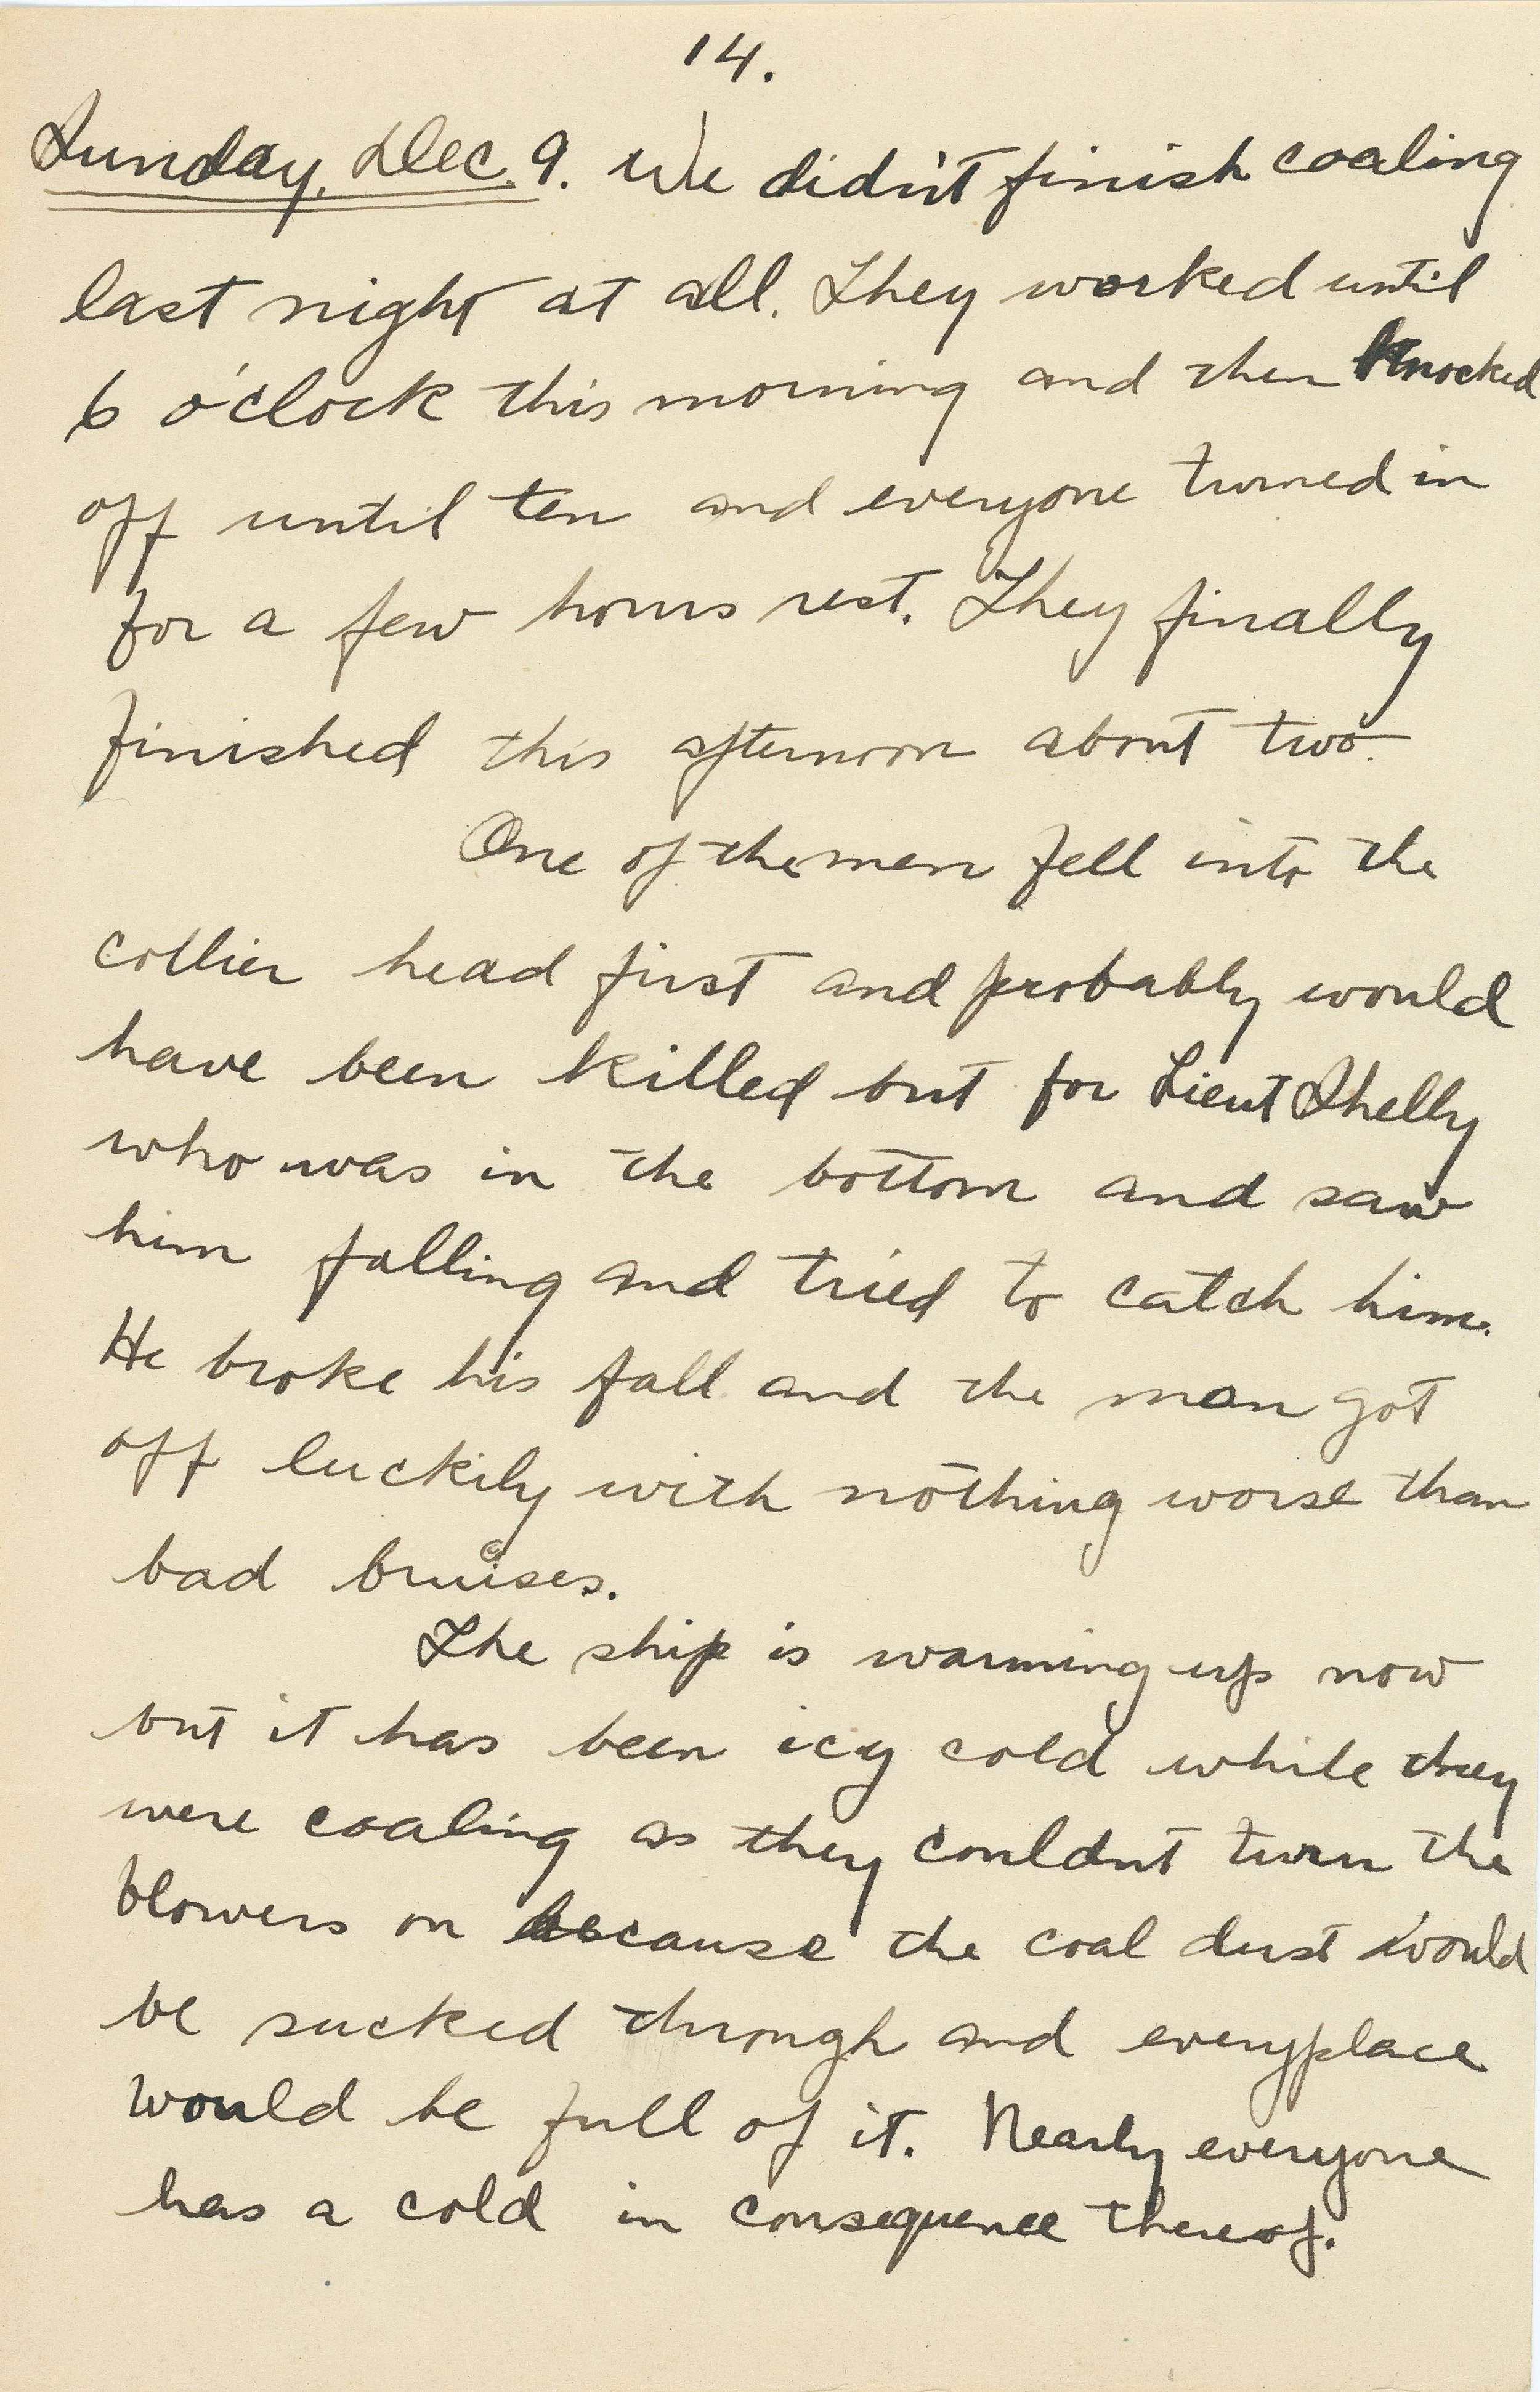 14.
Sunday, Dec. 9. We didn't finish coaling
last night at all. They worked until
6 o'clock this morning and then knocked
off until ten and everyone turned in
for a few hours rest. They finally
finished this afternoon about two.
One of the men fell into the
collier head first and probably would
have been killed but for Lieut Shelly
who was in the bottom and saw
him falling and tried to catch him.
He broke his fall and the man got
off luckily with nothing worse than
bad bruises.
The ship is warming up now
but it has been icy cold while they
were coaling as they couldnt turn the
blowers on because the coal dust would
be sucked through and everyplace
would be full of it. Nearly everyone
has a cold in consequence thereof.